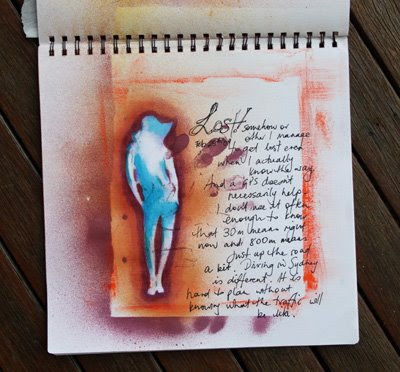 Lost somehow or
other I manage
to get lost even
when I actually
know the way
And a GPS doesn't
necessarily help
I don't use it often
enough to know
that 30m means right
now and 800m means
just up the road
a bit. Driving in Sydney
is different. It is
hard to plan without
knowing what the traffic will
be like.